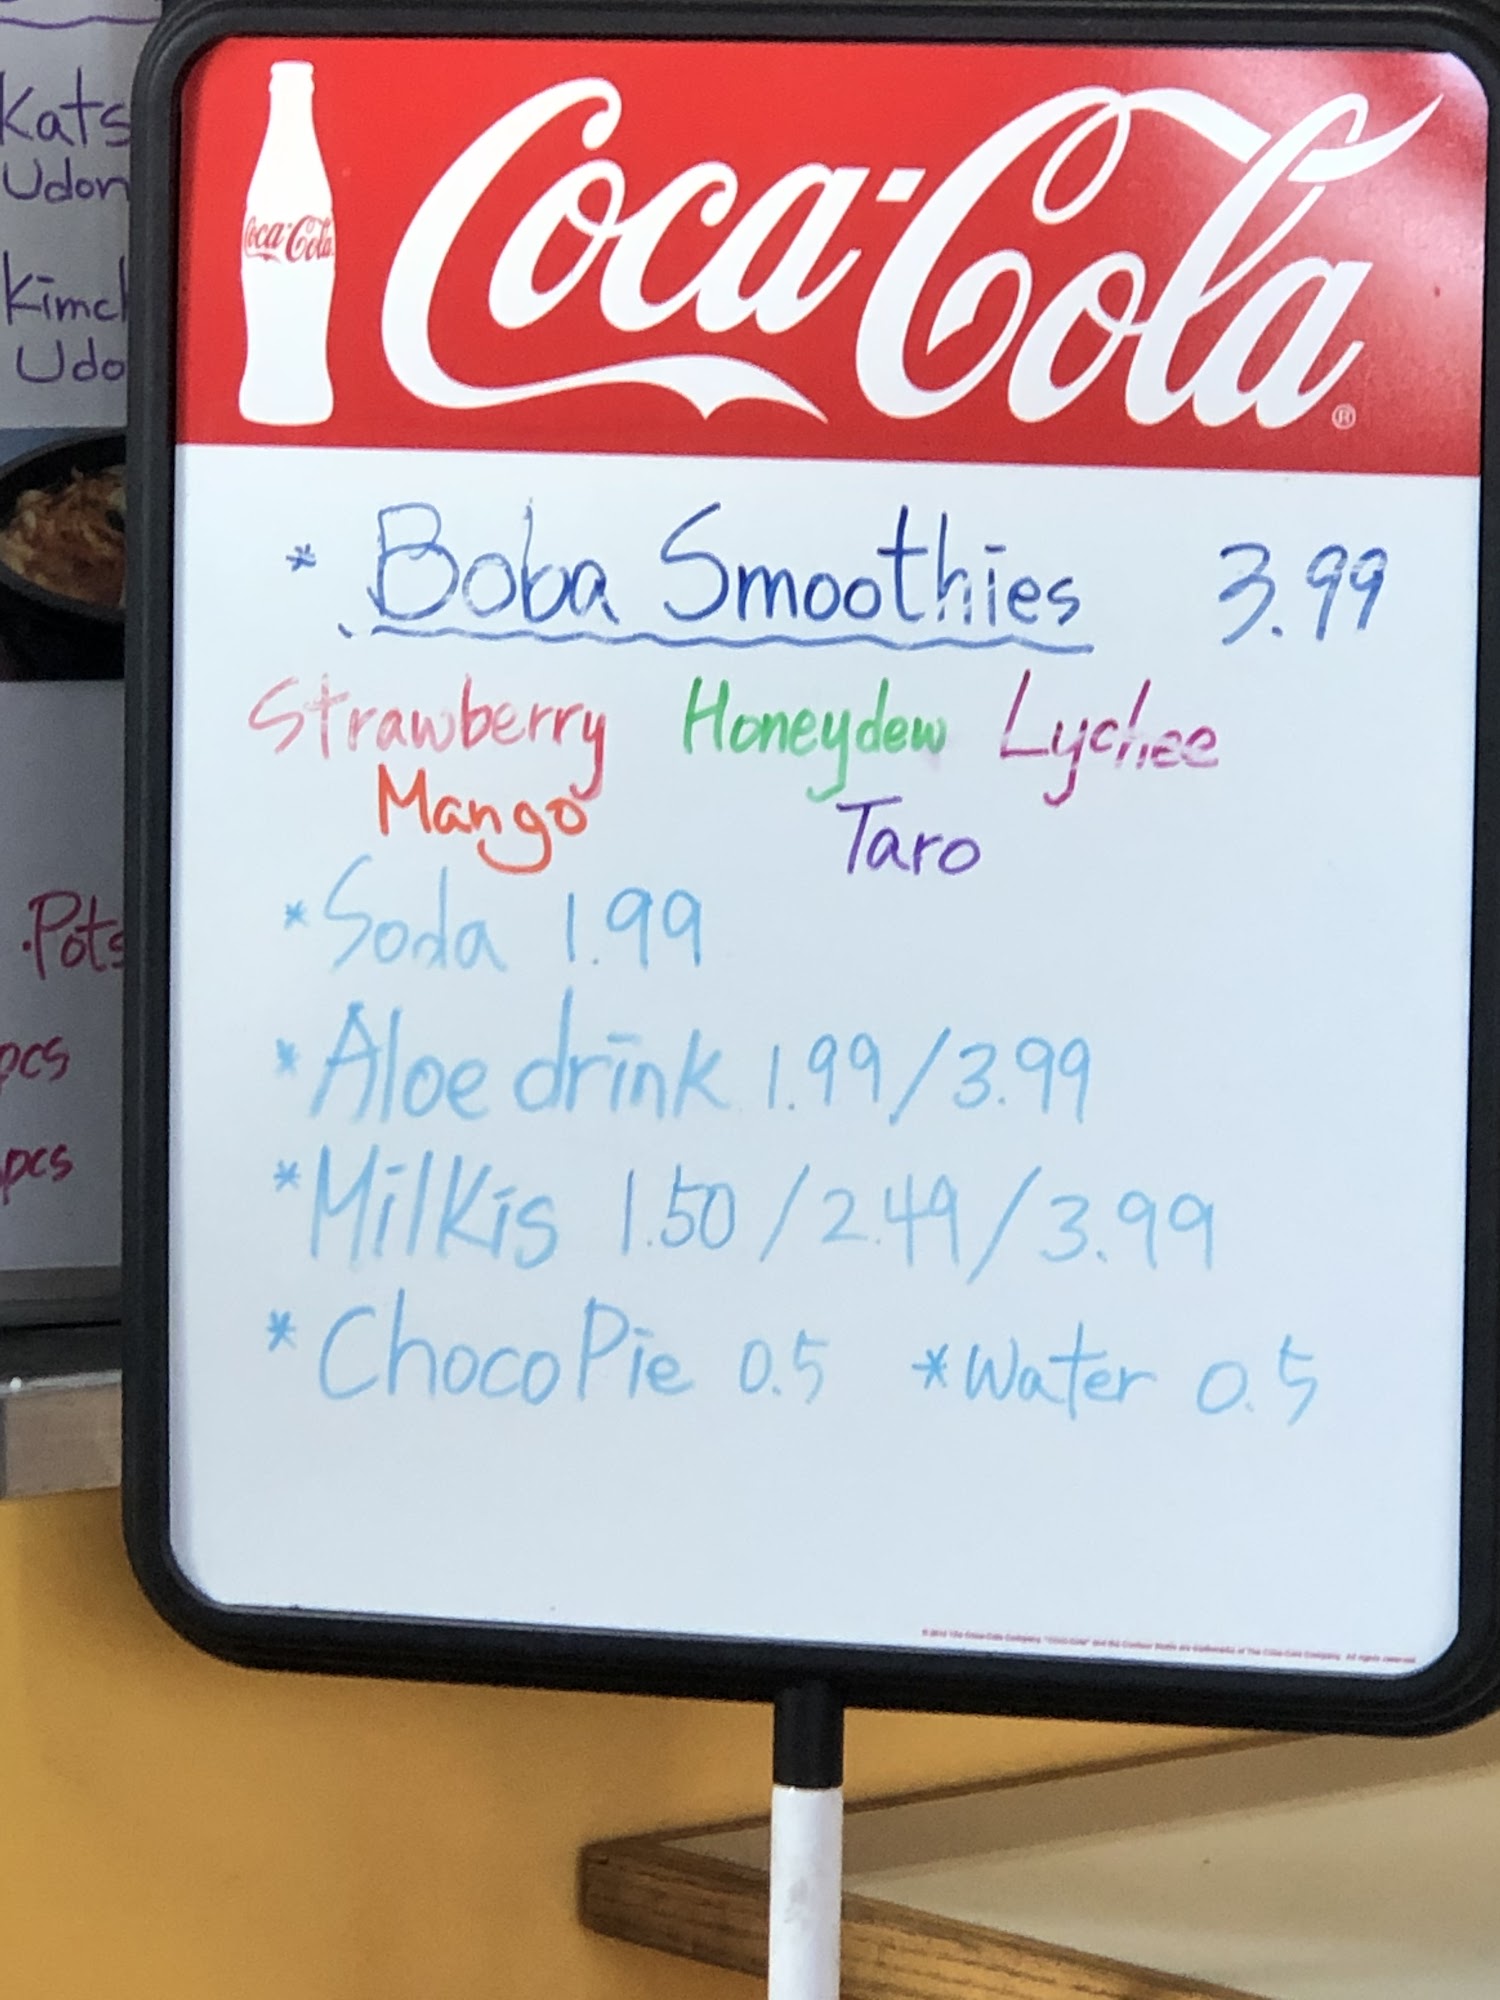 Kats
Udon
Kimch
Udo
.Pots
pcs
pcs
Coca-Cola
Coca-Cola®
* Boba Smoothies 3.99
Strawberry Honeydew Lychee
Mango Taro
*Soda 1.99
*Aloe drink 1.99/3.99
*Milkis 1.50/2.49/3.99
*ChocoPie 0.5 *Water 0.5